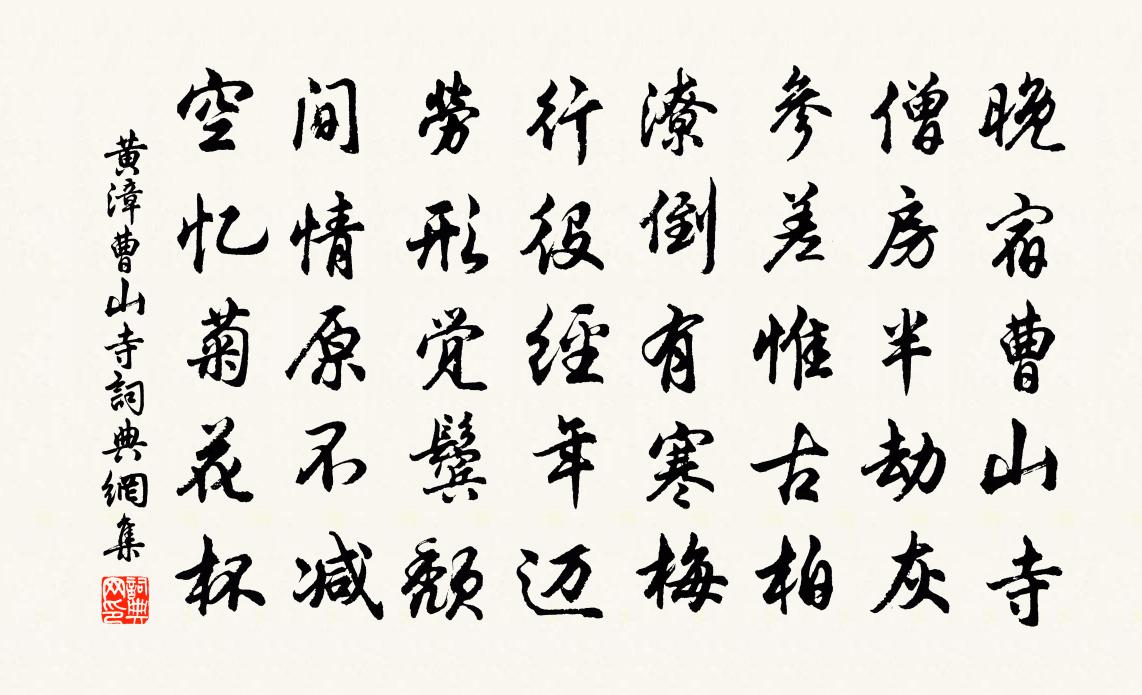 晚宿曹山寺
僧房半劫灰
參差惟古柏
潦倒有寒梅
行役經年迈
勞形觉鬓颓
间情原不减
空忆菊花杯
黃漳曹山寺詞典網集
詞典网印